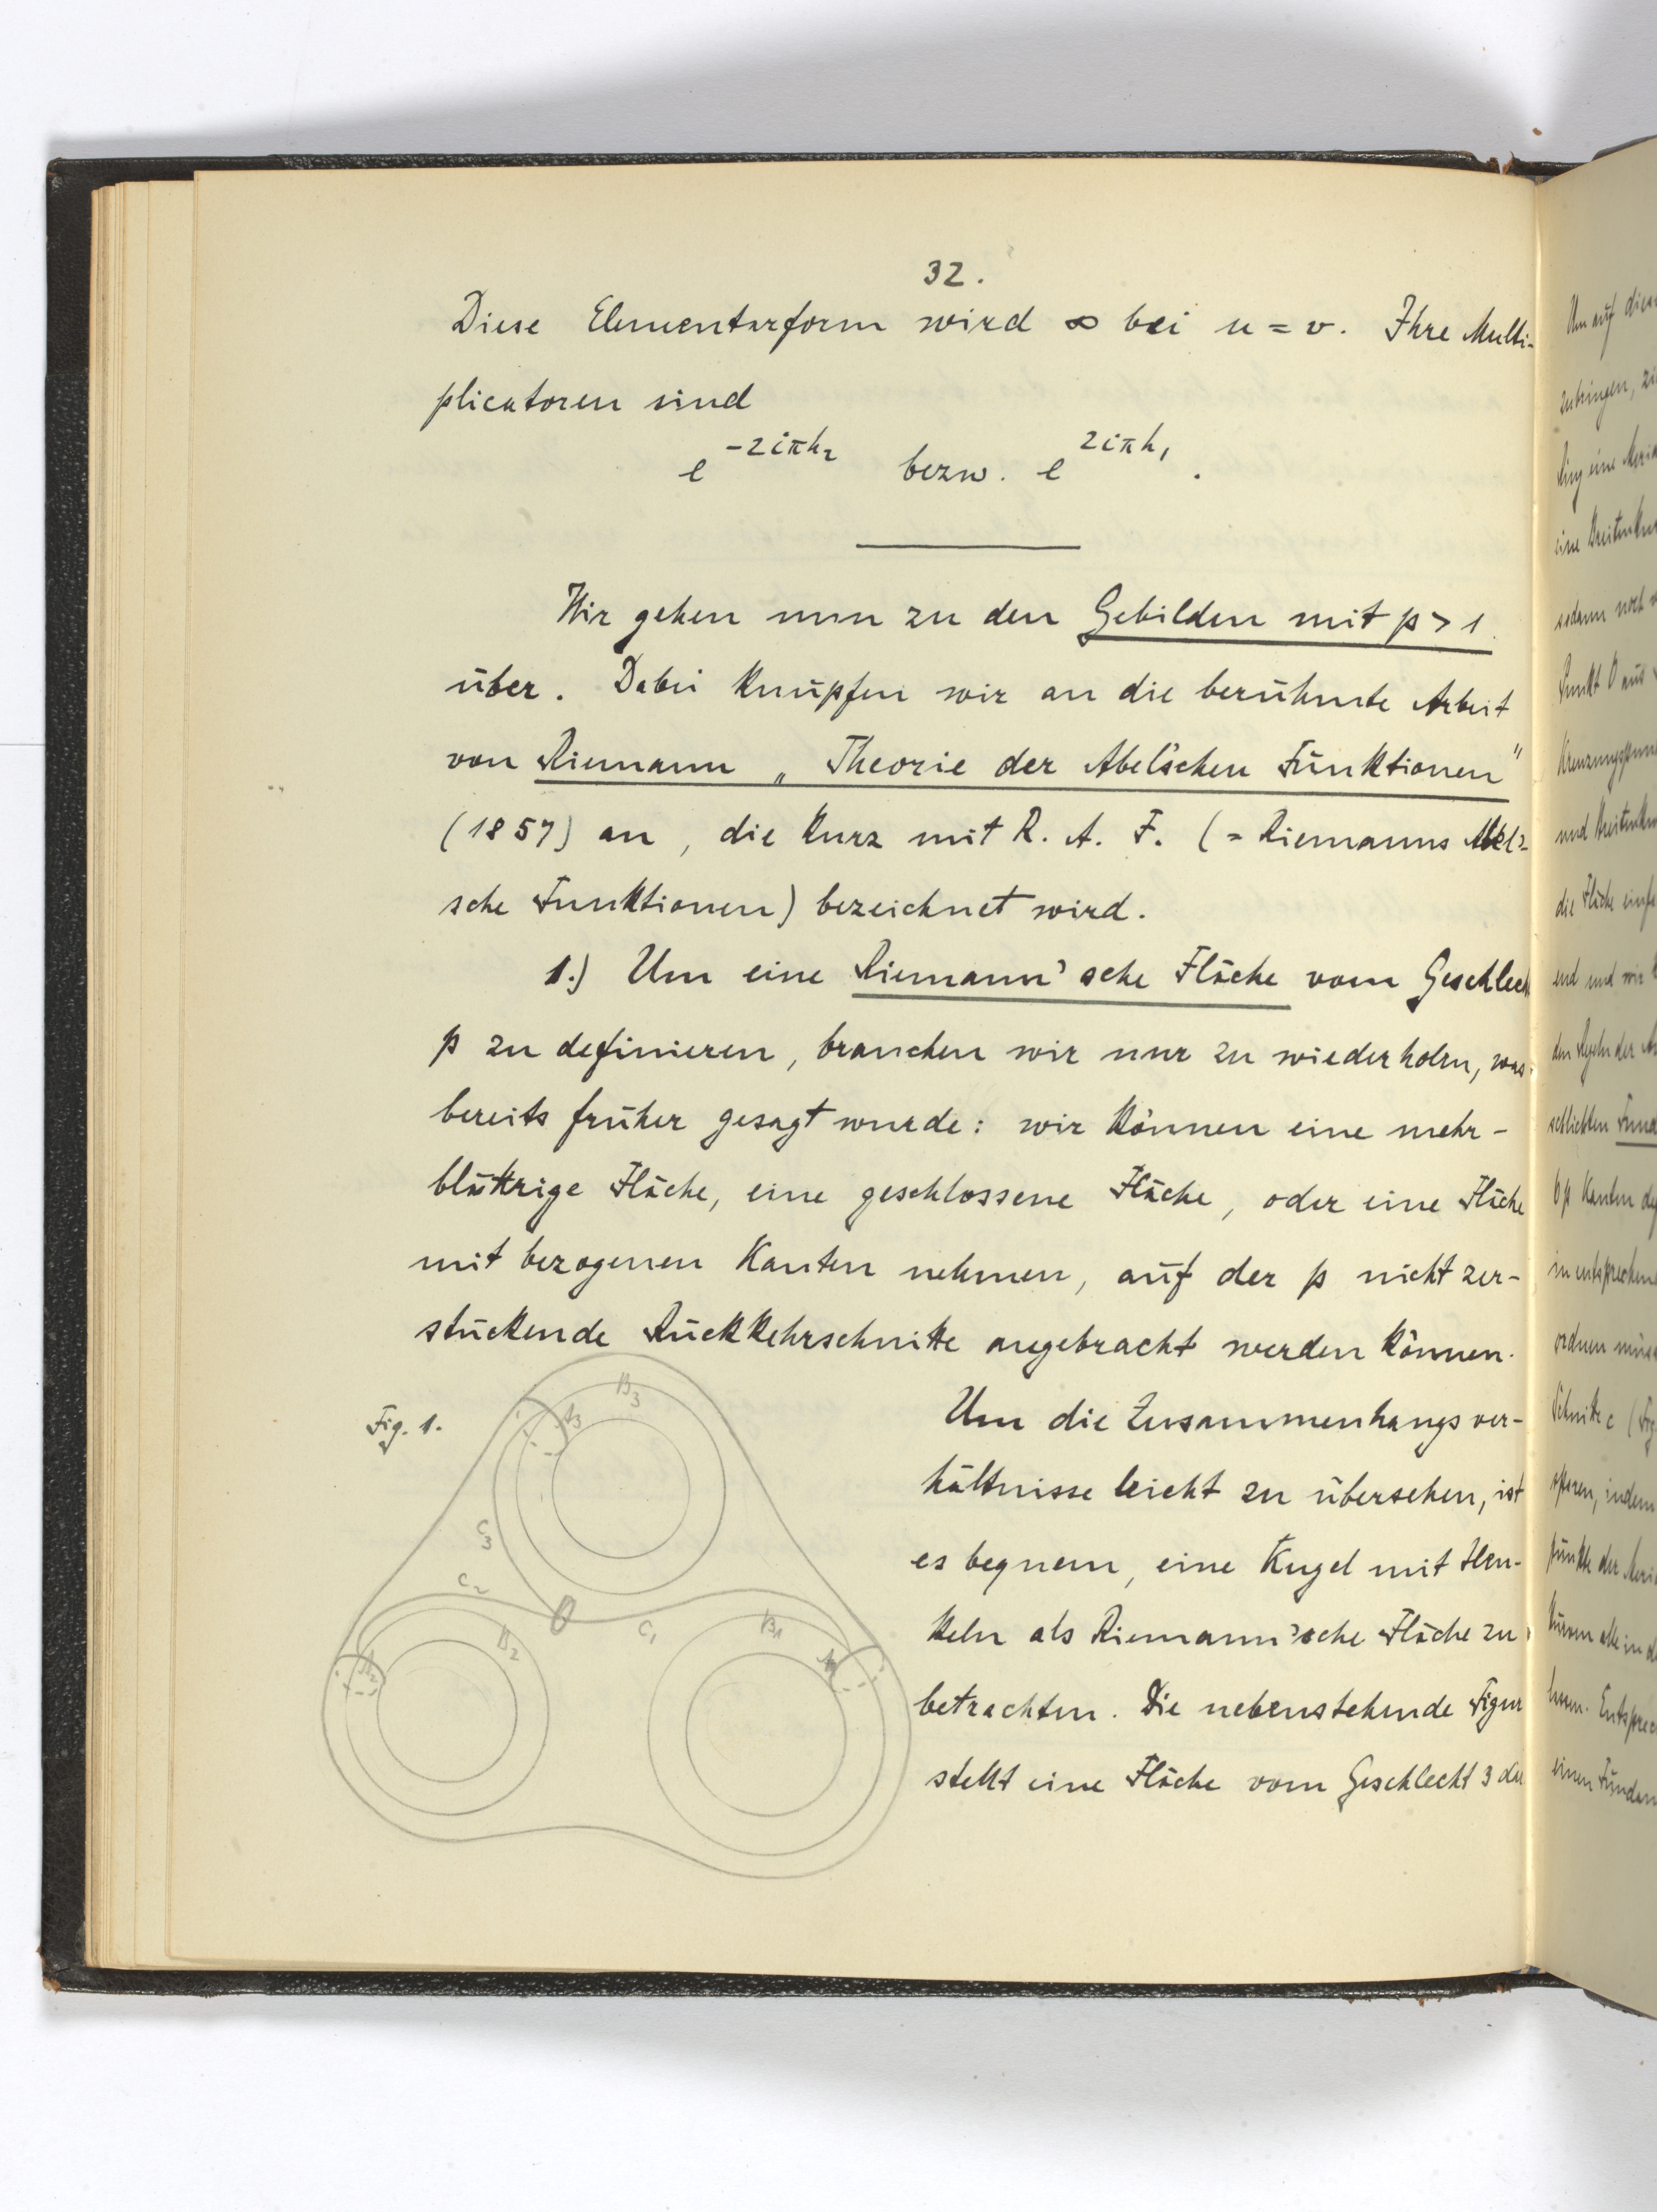 32.
Diese Elementarform wird ∞ bei u = v. Ihre Multi-
plicatoren sind
e^{-2iπh₂} bezw. e^{2iπh₁}.
Wir gehen nun zu den Gebilden mit p > 1
über. Dabei knüpfen wir an die berühmte Arbeit
von Riemann „Theorie der Abel'schen Funktionen"
(1857) an, die kurz mit R. A. F. (= Riemanns Abel'-
sche Funktionen) bezeichnet wird.
1.) Um eine Riemann'sche Fläche vom Geschlecht
p zu definieren, brauchen wir nur zu wiederholen, was
bereits früher gesagt wurde: wir können eine mehr-
blättrige Fläche, eine geschlossene Fläche, oder eine Fläche
mit bezogenen Kanten nehmen, auf der p nicht zer-
stückende Rückkehrschnitte angebracht werden können.
Fig. 1.
B₃
A₃
C₃
C₂
O
C₁
B₂
B₁
A₂
A₁
Um die Zusammenhangsver-
hältnisse leicht zu übersehen, ist
es bequem, eine Kugel mit Hen-
keln als Riemann'sche Fläche zu
betrachten. Die nebenstehende Figur
stellt eine Fläche vom Geschlecht 3 dar
Um auf diese
zubringen,
Ring eine
eine
sodann noch
Punkt O aus
und
die Fläche
end und wir
den Regeln der
schlichten
6p Kanten
ordnen
Schnitte c
sparen, indem
punkte der
einen